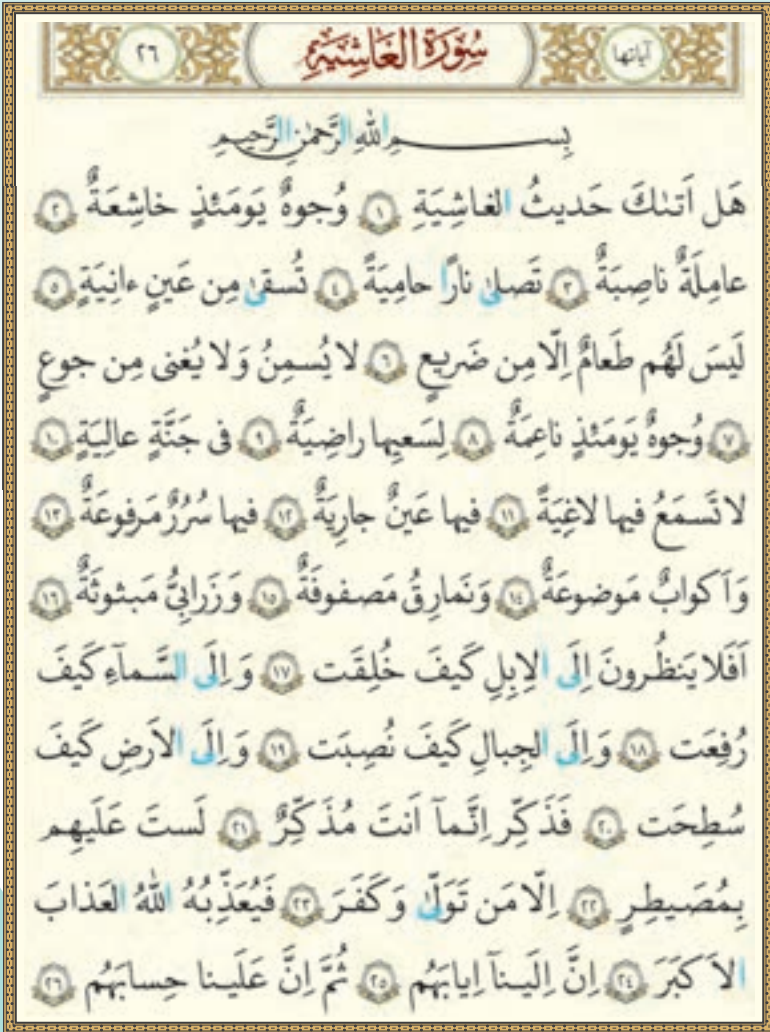 آیاتها سُورَةُ الغَاشِيَةِ ٢٦
بِسـمِ اللهِ الرَّحمٰنِ الرَّحيمِ
هَل اَتىٰكَ حَديثُ الغاشِيَةِ ١ وُجوهٌ يَومَئِذٍ خاشِعَةٌ ٢
عامِلَةٌ ناصِبَةٌ ٣ تَصلىٰ نارًا حامِيَةً ٤ تُسقىٰ مِن عَينٍ ءانِيَةٍ ٥
لَيسَ لَهُم طَعامٌ اِلّا مِن ضَريعٍ ٦ لا يُسمِنُ وَلا يُغنى مِن جوعٍ
٧ وُجوهٌ يَومَئِذٍ ناعِمَةٌ ٨ لِسَعيِها راضِيَةٌ ٩ فى جَنَّةٍ عالِيَةٍ ١٠
لا تَسمَعُ فيها لاغِيَةً ١١ فيها عَينٌ جارِيَةٌ ١٢ فيها سُرُرٌ مَرفوعَةٌ ١٣
وَاَكوابٌ مَوضوعَةٌ ١٤ وَنَمارِقُ مَصفوفَةٌ ١٥ وَزَرابِىُّ مَبثوثَةٌ ١٦
اَفَلا يَنظُرونَ اِلَى الاِبِلِ كَيفَ خُلِقَت ١٧ وَاِلَى السَّماۤءِ كَيفَ
رُفِعَت ١٨ وَاِلَى الجِبالِ كَيفَ نُصِبَت ١٩ وَاِلَى الاَرضِ كَيفَ
سُطِحَت ٢٠ فَذَكِّر اِنَّماۤ اَنتَ مُذَكِّرٌ ٢١ لَستَ عَلَيهِم
بِمُصَيطِرٍ ٢٢ اِلّا مَن تَوَلّىٰ وَكَفَرَ ٢٣ فَيُعَذِّبُهُ اللهُ العَذابَ
الاَكبَرَ ٢٤ اِنَّ اِلَيناۤ اِيابَهُم ٢٥ ثُمَّ اِنَّ عَلَينا حِسابَهُم ٢٦